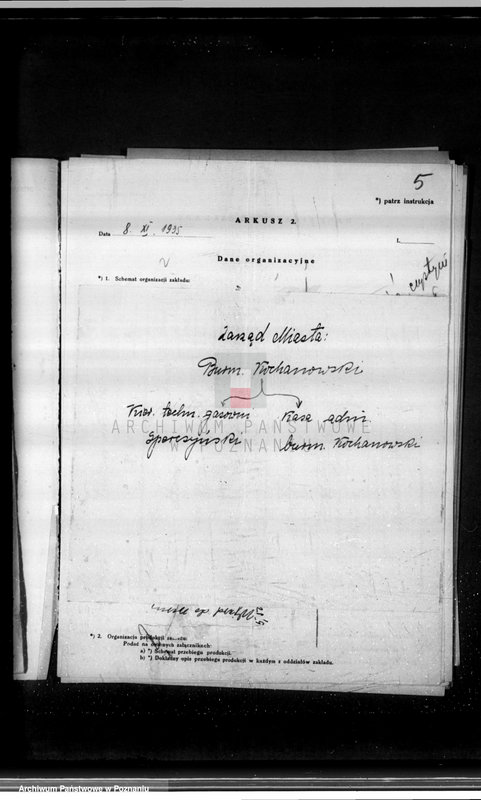 5
*) patrz instrukcja
ARKUSZ 2.
Data 8. XI. 1935
L.
Dane organizacyjne
*) 1. Schemat organizacji zakładu:
Zarząd Miasta:
Burm. Kochanowski
Kier. techn. gazowni Kasa
burm. Kochanowski
ARCHIWUM PAŃSTWOWE
W POZNANIU
*) 2. Organizacja produkcji
Podać na osobnych załącznikach:
a) *) Schemat przebiegu produkcji.
b) *) Dokładny opis przebiegu produkcji w każdym z oddziałów zakładu.
Archiwum Państwowe w Poznaniu